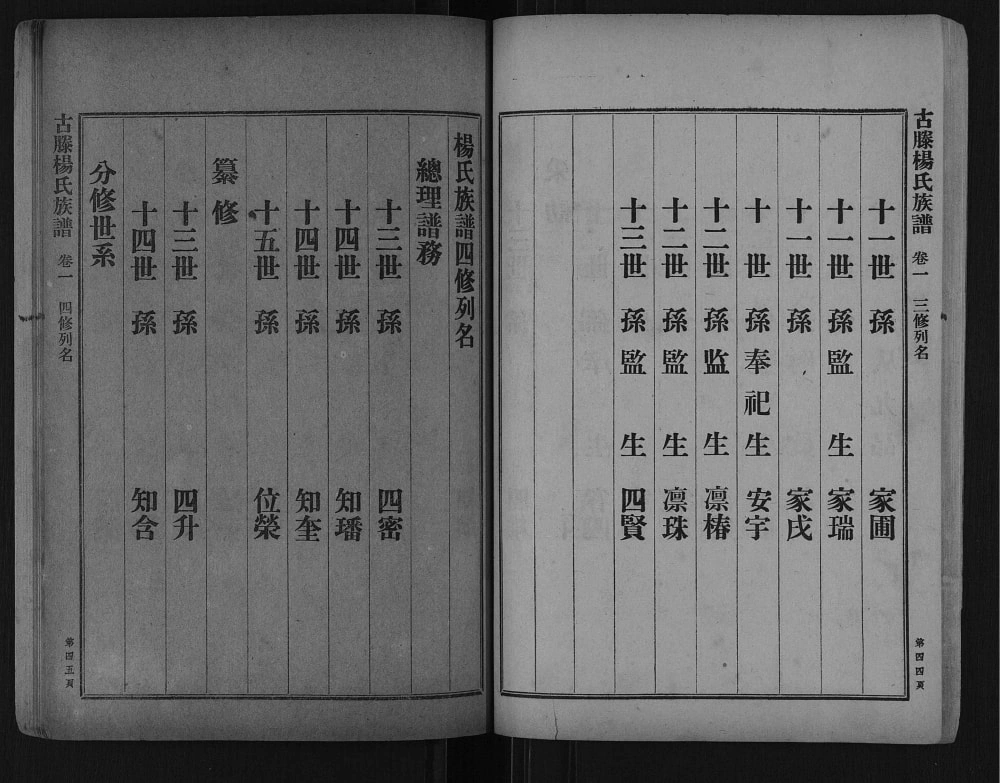 古滕楊氏族譜 卷一 三修列名 第四四頁
十一世 孫 家圃
十一世 孫監 生 家瑞
十一世 孫 家戌
十 世 孫奉祀生 安宇
十二世 孫监 生 凛椿
十二世 孫監 生 凛珠
十三世 孫監 生 四賢
楊氏族譜四修列名
總理譜務
十三世 孫 四密
十四世 孫 知璠
十四世 孫 知奎
十五世 孫 位榮
纂修
十三世 孫 四升
十四世 孫 知含
分修世系
古滕楊氏族譜 卷一 四修列名 第四五頁